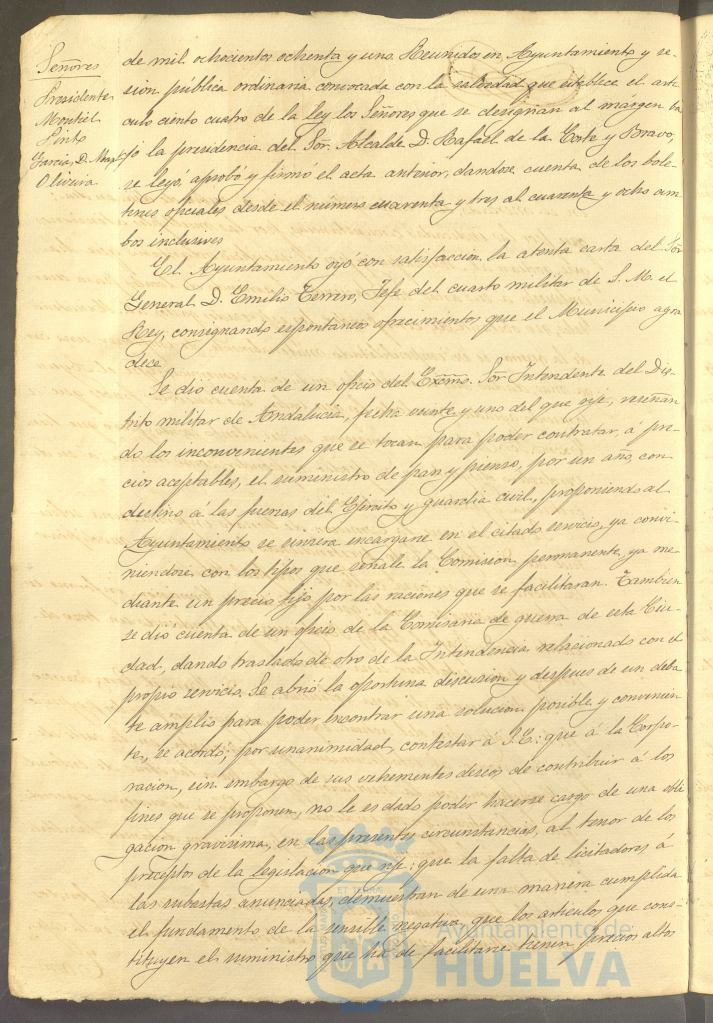 Señores
Presidente
Montiel
Pinto
García, D. Man.l
Oliveira
de mil ochocientos ochenta y uno. Reunidos en Ayuntamiento y se-
sion pública ordinaria convocada con la que establece el arti-
culo ciento cuatro de la ley los Señores que se designan al márgen ba-
jo la presidencia del Sor. Alcalde D. Rafael de la Corte y Bravo,
se leyó, aprobó y firmó el acta anterior, dandose cuenta de los bole-
tines oficiales desde el número cuarenta y tres al cuarenta y ocho am-
bos inclusives
El Ayuntamiento oyó con satisfaccion la atenta carta del Sor
General D. Emilio Terrero, Jefe del cuarto militar de S. M. el
Rey, consignando espontaneos ofrecimientos que el Municipio agra-
dece
Se dió cuenta de un oficio del Excmo. Sor Intendente del Dis-
trito militar de Andalucia, fecha veinte y uno del que rije, reseñan-
do los inconvenientes que se tocan para poder contratar, á pre-
cios aceptables, el suministro de pan y pienso, por un año, con
destino a las fuerzas del Ejército y guardia civil, proponiendo al
Ayuntamiento se sirviera encargarse en el citado servicio, ya convi-
niendose con los tipos que señale la Comision permanente, ya me-
diante un precio fijo por las raciones que se facilitaran. Tambien
se dió cuenta de un oficio de la Comisaria de guerra de esta Ciu-
dad, dando traslado de otro de la Intendencia relacionado con el
propio servicio. Se abrió la oportuna discusion y despues de un deba-
te amplio para poder encontrar una solucion posible y convenien-
te, se acordó, por unanimidad, contestar á S. E.: que á la Corpo-
racion, sin embargo de sus vehementes deseos de contribuir á los
fines que se proponen, no le es dado poder hacerse cargo de una obli-
gacion gravisima, en las presentes circunstancias, al tenor de los
preceptos de la legislacion que rije: que la falta de licitadores á
las subastas anunciadas, demuestran de una manera cumplida
el fundamento de la sensible negativa, que los articulos que cons-
tituyen el suministro que ha de facilitarse tienen precios altos
Ayuntamiento de
HUELVA